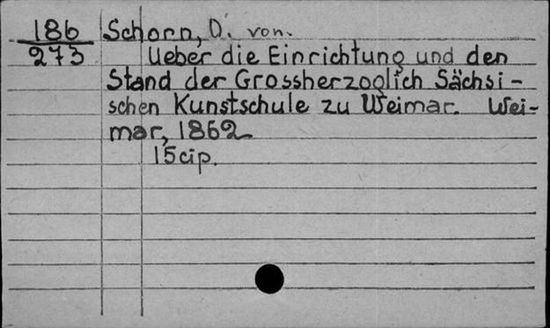 186 Schorn, O. von.
273 Ueber die Einrichtung und den
Stand der Grossherzoglich Sächsi-
schen Kunstschule zu Weimar. Wei-
mar, 1862
15 cip.